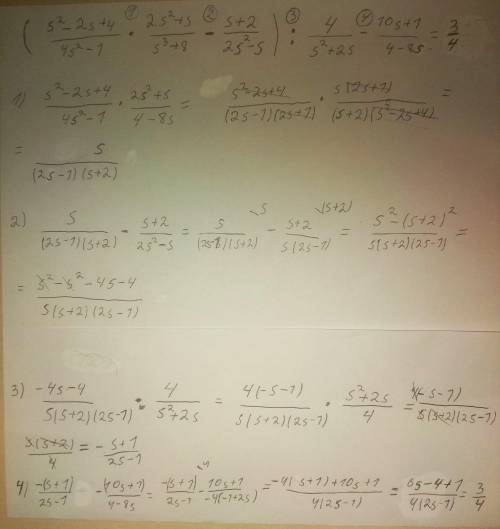 ( (s²-2s+4)/(4s²-1) ① · (2s²+s)/(s³+8) ② - (s+2)/(2s²-s) ) ③ : 4/(s²+2s) ④ - (10s+1)/(4-8s) = 3/4
1) (s²-2s+4)/(4s²-1) · (2s²+s)/(4-8s) = (s²-2s+4)/((2s-1)(2s+1)) · s(2s+1)/((s+2)(s²-2s+4)) =
= s/((2s-1)(s+2))
2) s/((2s-1)(s+2)) - (s+2)/(2s²-s) = s/((2s-1)(s+2)) \s - (s+2)/(s(2s-1)) \(s+2) = (s²-(s+2)²)/(s(s+2)(2s-1)) =
= (s²-s²-4s-4)/(s(s+2)(2s-1))
3) (-4s-4)/(s(s+2)(2s-1)) : 4/(s²+2s) = 4(-s-1)/(s(s+2)(2s-1)) · (s²+2s)/4 = 4(-s-1)/(s(s+2)(2s-1))
s(s+2)/4 = - (s+1)/(2s-1)
4) -(s+1)/(2s-1) - (10s+1)/(4-8s) = -(s+1)/(2s-1) \4 - (10s+1)/(-4(-1+2s)) = (-4(s+1)+10s+1)/(4(2s-1)) = (6s-4+1)/(4(2s-1)) = 3/4